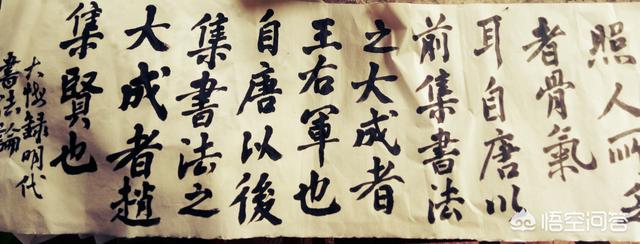 照人所
者骨氣
耳自唐以
前集書法
之大成者
王右軍也
自唐以後
集書法之
大成者趙
集賢也
録明代
書法論
悟空问答